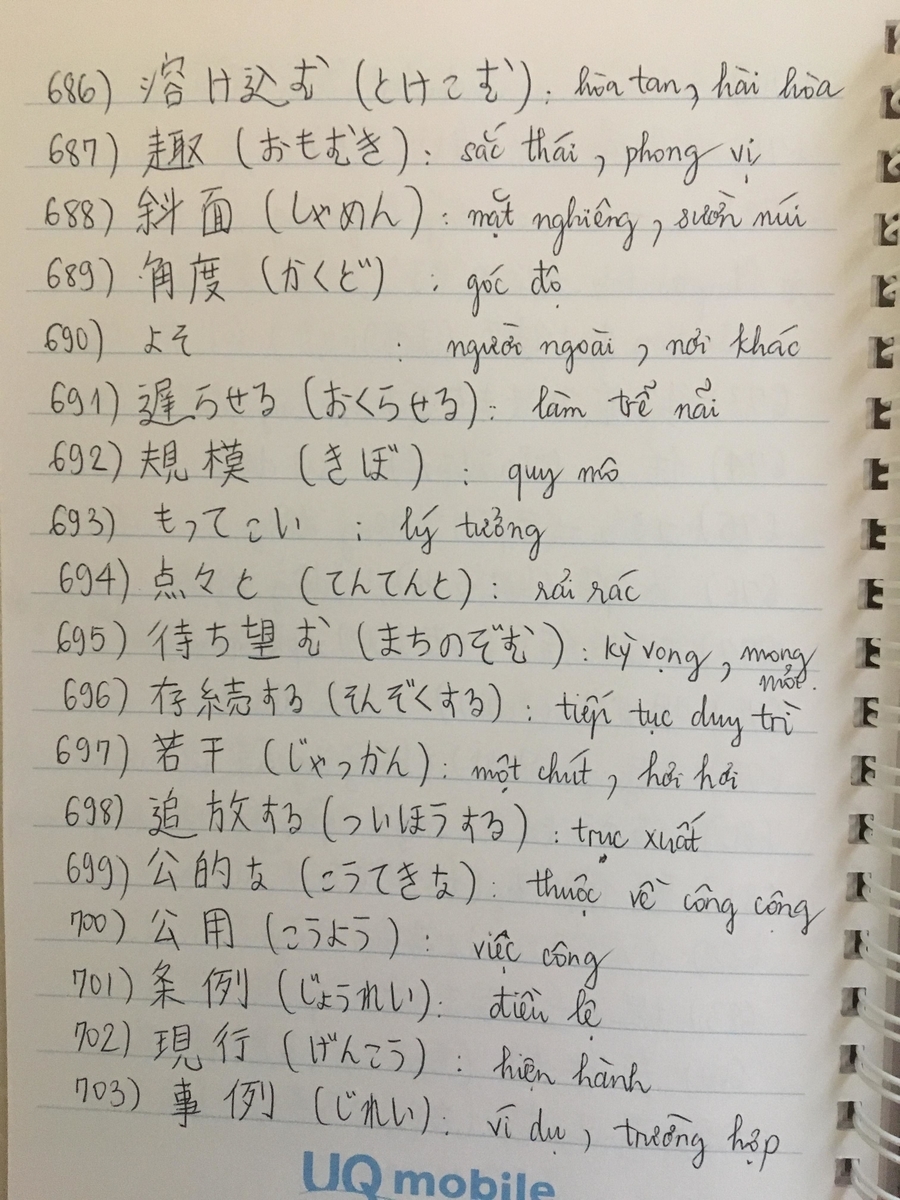 686) 溶け込む (とけこむ) : hòa tan, hài hòa
687) 趣 (おもむき) : sắc thái, phong vị
688) 斜面 (しゃめん) : mặt nghiêng, sườn núi
689) 角度 (かくど) : góc độ
690) よそ : người ngoài, nơi khác
691) 遅らせる (おくらせる) : làm trễ nải
692) 規模 (きぼ) : quy mô
693) もってこい : lý tưởng
694) 点々と (てんてんと) : rải rác
695) 待ち望む (まちのぞむ) : kỳ vọng, mong mỏi.
696) 存続する (そんぞくする) : tiếp tục duy trì
697) 若干 (じゃっかん) : một chút, hơi hơi
698) 追放する (ついほうする) : trục xuất
699) 公的な (こうてきな) : thuộc về công cộng
700) 公用 (こうよう) : việc công
701) 条例 (じょうれい) : điều lệ
702) 現行 (げんこう) : hiện hành
703) 事例 (じれい) : ví dụ, trường hợp
UQ mobile